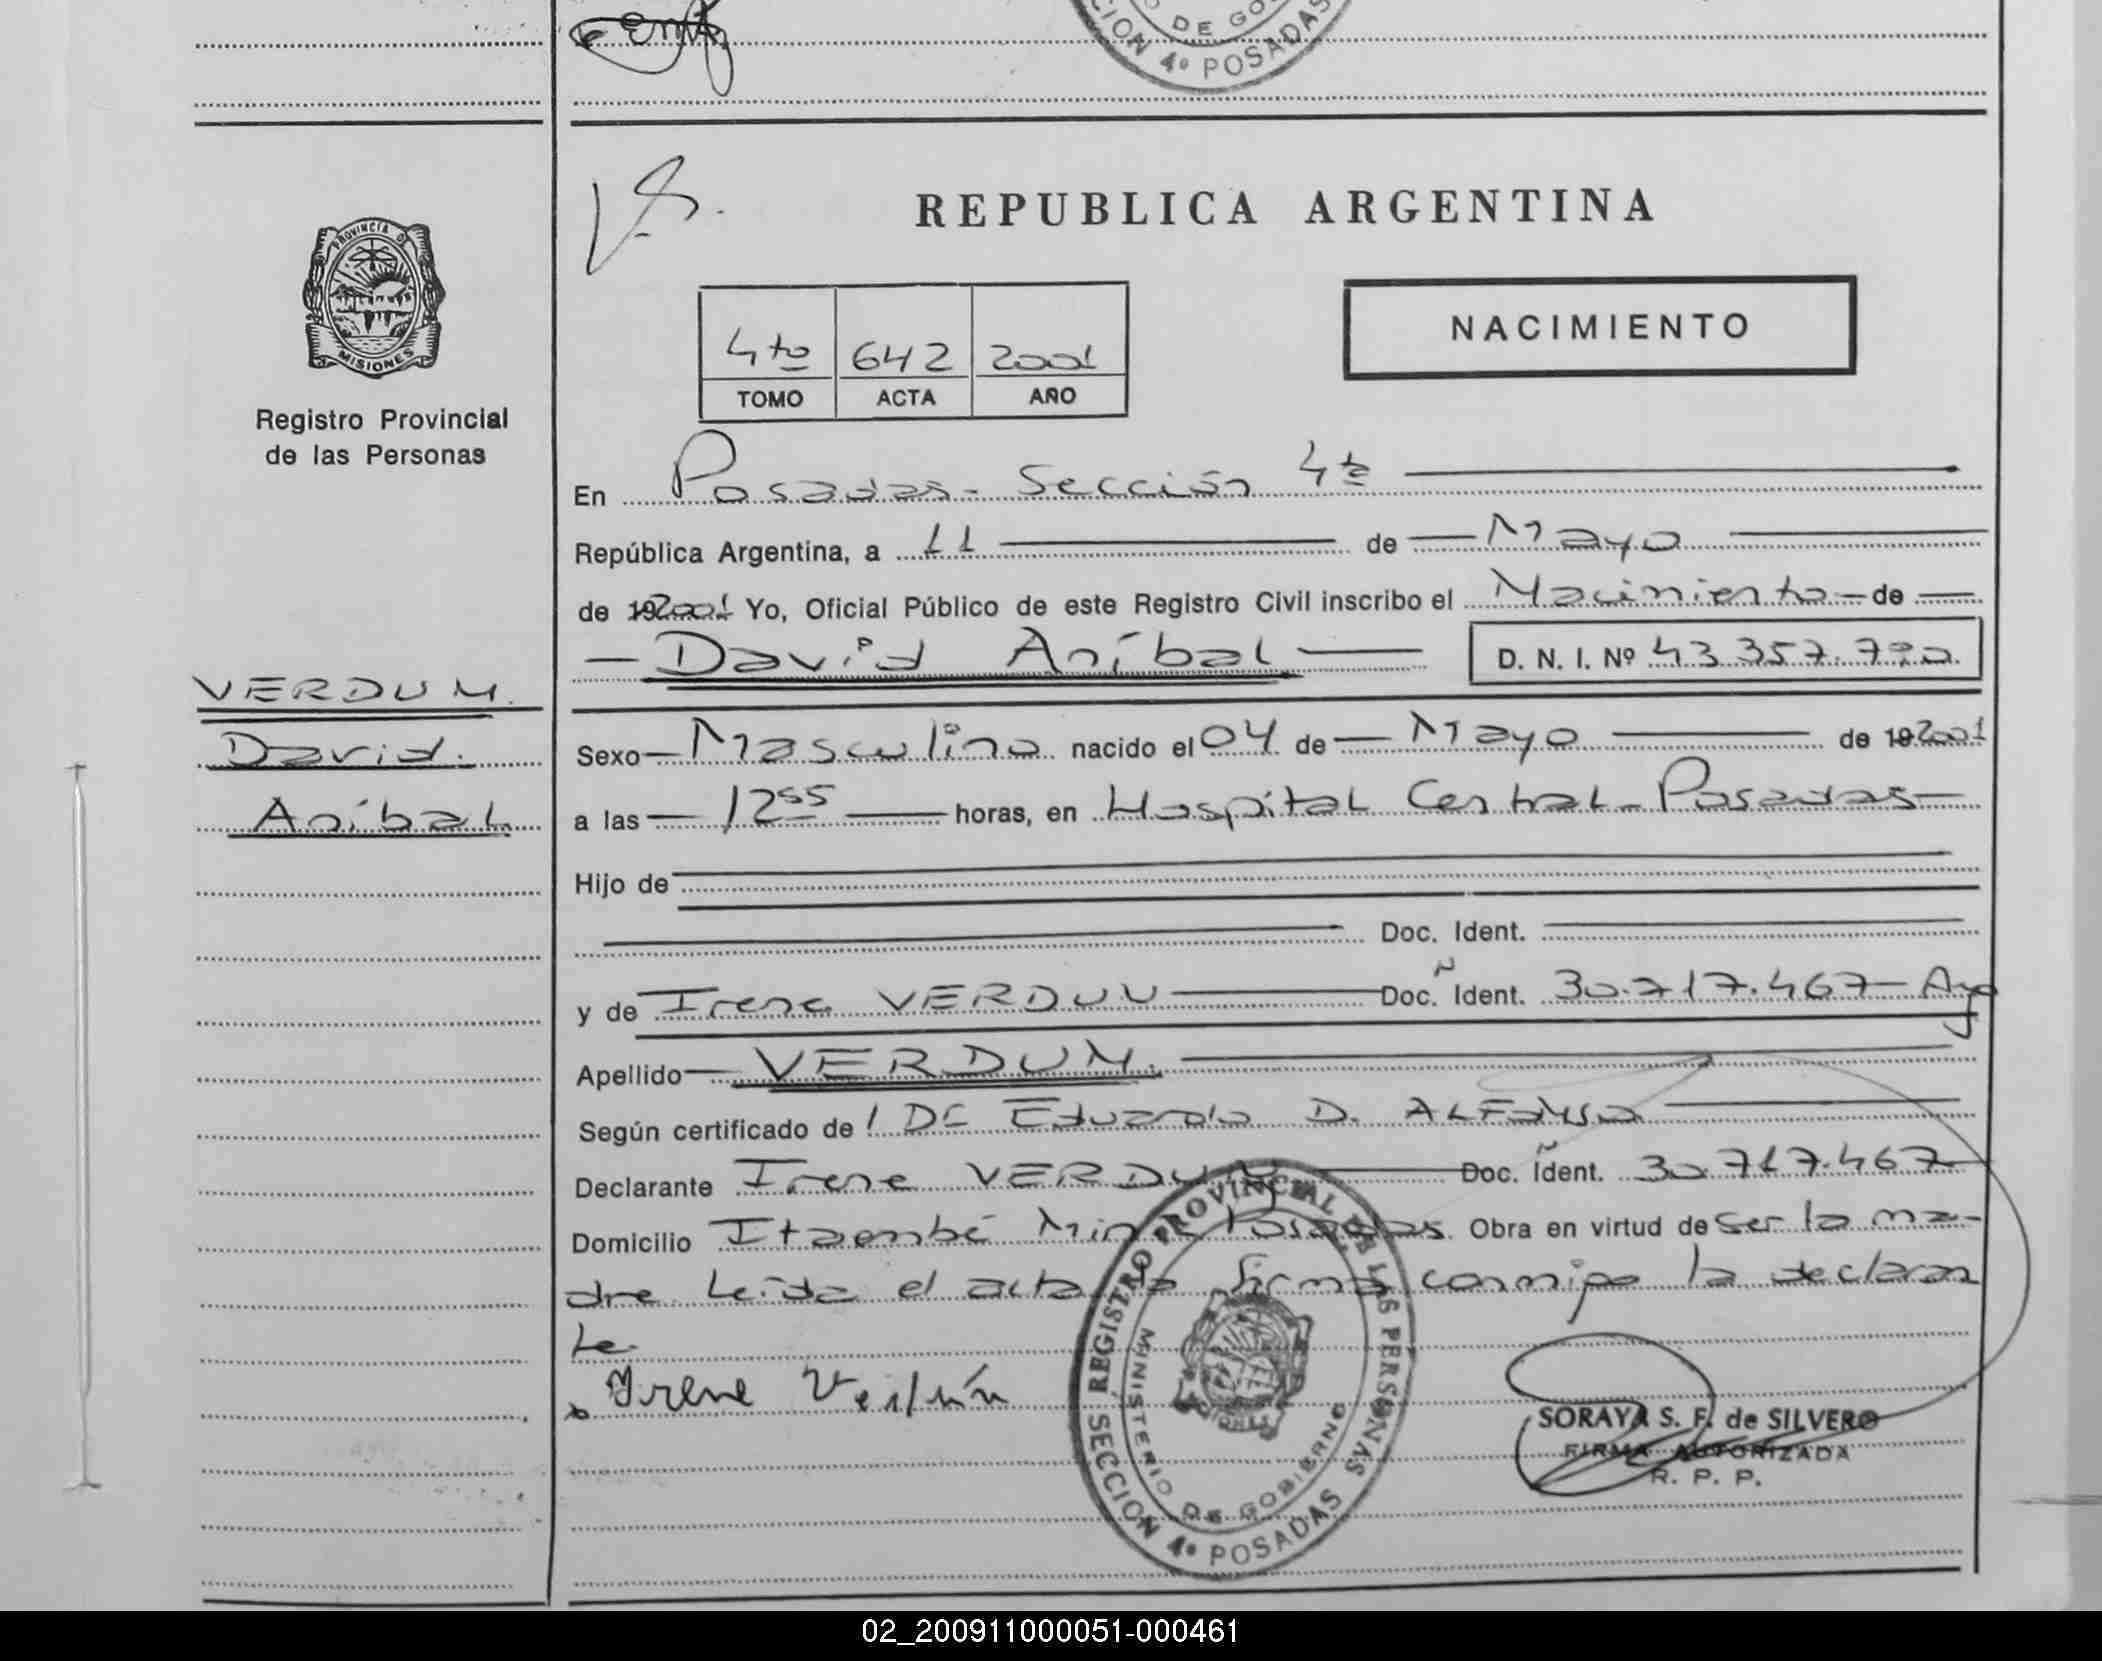 DE GO
CION 4º POSADAS
REPUBLICA ARGENTINA
PROVINCIA DE
MISIONES
Registro Provincial
de las Personas
4to 642 2001
TOMO ACTA AÑO
NACIMIENTO
En Posadas - Sección 4ta
República Argentina, a 11 de Mayo
de 19 2001 Yo, Oficial Público de este Registro Civil inscribo el Nacimiento de
David Aníbal D. N. I. Nº 43.357.790
VERDUN.
David.
Aníbal
Sexo Masculino nacido el 04 de Mayo de 19 2001
a las 12 55 horas, en Hospital Central - Posadas
Hijo de
Doc. Ident.
y de Irene VERDUN Doc. Ident. 30.717.467 - Arg
Apellido VERDUN.
Según certificado de Eduardo D. ALFONSO
Declarante Irene VERDUN Doc. Ident. 30.717.467
Domicilio Itaembé Miní Posadas. Obra en virtud de ser la ma-
dre. Leída el acta la firma conmigo la declaran
te.
Irene Verdún
REGISTRO PROVINCIAL DE LAS PERSONAS
MINISTERIO DE GOBIERNO
SECCION 4º POSADAS
SORAYA S. F. de SILVERO
FIRMA AUTORIZADA
R. P. P.
02_200911000051-000461